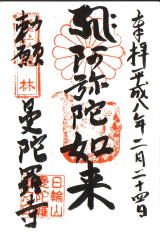 奉拝 平成八年二月二十四日
阿弥陀如来
勅願
曼陀羅寺
日輪山
曼陀羅